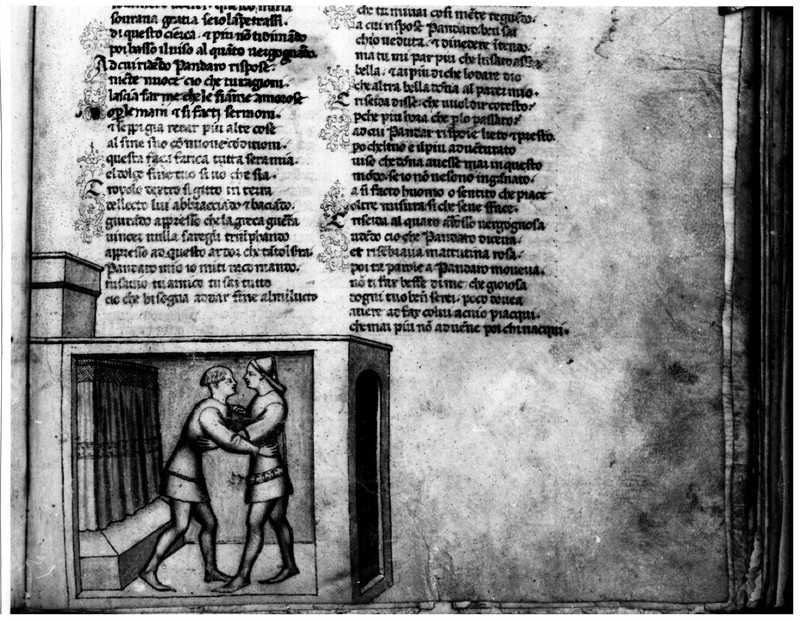 sourana gratia se io lapetrassi.
di questo cierca. & piu nō ti dimādo
poi basso iluiso al quāto uergognādo.
Ad cui ridēdo Pandaro rispose.
niēte nuoce cio che tu ragioni.
lascia far me che le fiāme amorose
o p le mani & si facti sermoni.
& seppi gia recar piu alte cose
al fine suo cō nuoue cōditioni.
questa fatica tutta sera mia.
el dolçe fine tuo si uo che sia.
Troyolo dextro si gitto in terra
del lecto lui abbracciādo & baciādo.
giurādo appresso che la greca guerra
uincer nulla saregli triūphando
appresso ad questo ardor che tātol serra.
Pandaro mio io miti racomando.
tu sauio tu amico tu sai tutto
cio che bisogna ad dar fine almi lucto
che tu mirai cosi mēte
a cui rispose Pandaro: ben sai
chio ueduta. & di uedere ītendo.
ma tu mi par piu che lusato
bella. & ai piu di che lodare dio
che altra bella dōna al parer mio.
Criseida disse: che uuol dir cotesto?
pche piu hora che plo passato?
ad cui Pandar rispose lieto & presto.
po chel tuo e il piu aduēturato
uiso che dōna auesse mai in questo
mōdo. se io nō ne sono ingānato.
a si facto huomo o sentito che piace
oltre misura si che sene sface.
Criseida al quāto uergognosa
udēdo cio che Pandaro diceua.
et risēbraua mattutina rosa.
poi ta parole a Pandaro moueua.
nō ti far beffe di me. che gioiosa
dogni tuo ben serei. poco doueua
auere ad far colui acuio piacqui.
che mai piu nō aduēne poi chi nacqui.